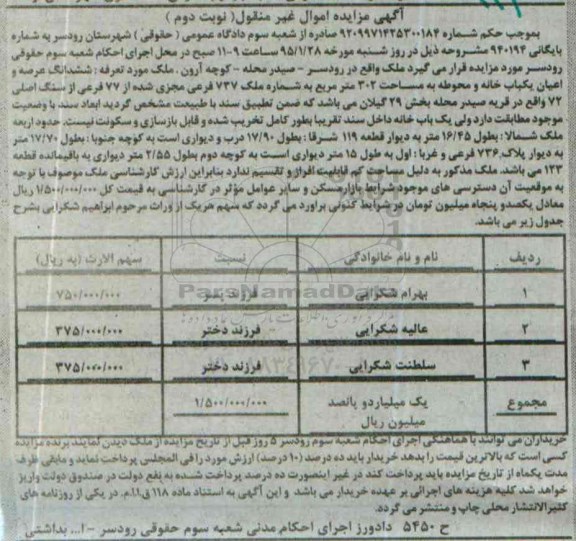 آگهی مزایده اموال غیر منقول( نوبت دوم )
بموجب حکم شماره ۹۲۰۹۹۷۱۴۲۵۳۰۰۱۸۴ صادره از شعبه سوم دادگاه عمومی ( حقوقی ) شهرستان رودسر به شماره
بایگانی ۹۴۰۱۹۴ مشروحه ذیل در روز شنبه مورخه ۹۵/۱/۲۸ ساعت ۹-۱۱ صبح در محل اجرای احکام شعبه سوم حقوقی
رودسر مورد مزایده قرار می گیرد ملک واقع در رودسر - صیدر محله - کوچه آرون . ملک مورد تعرفه : ششدانگ عرصه و
اعیان یکباب خانه و محوطه به مساحت ۳۰۲ متر مربع به شماره ملک ۷۳۷ فرعی مجزی شده از ۷۷ فرعی از سنگ اصلی
۷۲ واقع در قریه صیدر محله بخش ۲۹ گیلان می باشد که ضمن تطبیق سند با طبیعت مشخص گردید ابعاد سند با وضعیت
موجود مطابقت دارد ولی یک باب خانه داخل سند تقریبا بطور کامل تخریب شده و قابل بازسازی و سکونت نیست. حدود اربعه
ملک شمالا : بطول ۱۶/۴۵ متر به دیوار قطعه ۱۱۹ شرقا : بطول ۱۷/۹۰ درب و دیواری است به کوچه جنوبا : بطول ۱۷/۷۰ متر
به دیوار پلاک ۷۳۶ فرعی و غربا : اول به طول ۱۵ متر دیواری است به کوچه دوم بطول ۲/۵۵ متر دیواری به باقیمانده قطعه
۱۲۳ می باشد. ملک مذکور به دلیل مساحت کم قابلیت افراز و تقسیم ندارد بنابراین ارزش کارشناسی ملک موصوف با توجه
به موقعیت آن دسترسی های موجود شرایط بازار مسکن و سایر عوامل مؤثر در کارشناسی به قیمت کل ۱/۵۰۰/۰۰۰/۰۰۰ ریال
معادل یکصد و پنجاه میلیون تومان در شرایط کنونی براورد می گردد که سهم هریک از وراث مرحوم ابراهیم شکرایی بشرح
جدول زیر می باشد.
ردیف نام و نام خانوادگی نسبت سهم الارث (به ریال)
۱ بهرام شکرایی فرزند پسر ۷۵۰/۰۰۰/۰۰۰
۲ عالیه شکرایی فرزند دختر ۳۷۵/۰۰۰/۰۰۰
۳ سلطنت شکرایی فرزند دختر ۳۷۵/۰۰۰/۰۰۰
مجموع یک میلیاردو پانصد ۱/۵۰۰/۰۰۰/۰۰۰
میلیون ریال
ParsNamadData
خریداران می توانند با هماهنگی اجرای احکام شعبه سوم رودسر ۵ روز قبل از تاریخ مزایده از ملک دیدن نمایند برنده مزایده
کسی است که بالاترین قیمت را بدهد خریدار باید ده درصد (۱۰ درصد) ارزش مورد را فی المجلس پرداخت نماید و مابقی ظرف
مدت یکماه از تاریخ مزایده باید پرداخت کند در غیر اینصورت ده درصد پرداخت شده به نفع دولت در صندوق دولت واریز
خواهد شد کلیه هزینه های اجرائی بر عهده خریدار می باشد و این آگهی به استناد ماده ۱۱۸ ق.ا.م. در یکی از روزنامه های
کثیرالانتشار محلی چاپ و منتشر می گردد.
ح ۵۴۵۰ دادورز اجرای احکام مدنی شعبه سوم حقوقی رودسر -ا... بداشتی